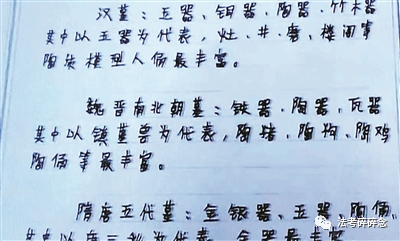 汉墓：玉器、铜器、陶器、竹木器
其中以玉器为代表，灶、井、磨、楼阁等
陶质模型人俑最丰富。
魏晋南北朝墓：铁器、陶器、瓦器
其中以镇墓兽为代表，陶猪、陶狗、陶鸡
陶俑等最丰富。
隋唐五代墓：金银器、玉器、陶俑
其中以唐三彩为代表，金器最丰富
法考碎碎念